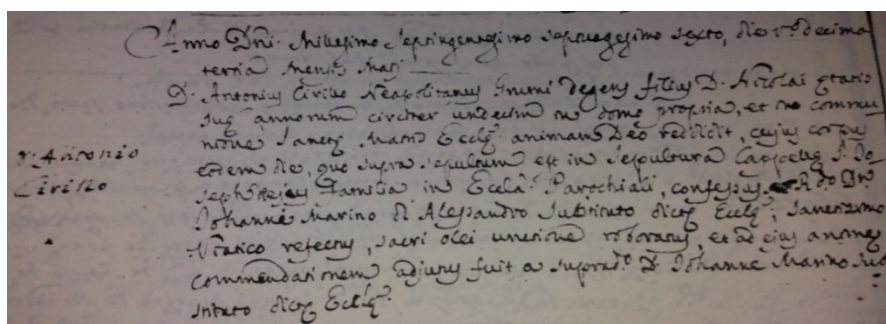 Anno Dni. Millesimo Septingentesimo Septuagesimo Sexto, die vo decima
tertia Mensis Maij
D. Antonius Cirillo Neapolitanus Grumi degens filius D. Nicolai etatis
suę annorum circiter undecim in domo propria, et in commu
nione Sanctę Matris Ecclę animam Deo reddidit, cujus corpus
eodem die, quo supra sepultum est in sepultura Cappellę S. Jo
seph ejus Familia in Eccla. Parochiali, confessus R.do D.
Johanne Marino di Alessandro Substituto dictę Ecclę, Sanctissimo
Viatico refectus, sacri olei unctione roboratus, et ad ejus animę
commendationem adjutus fuit a suprad.o D. Johanne Marino Sub
stituto dictę Ecclę.
D. Antonio
Cirillo